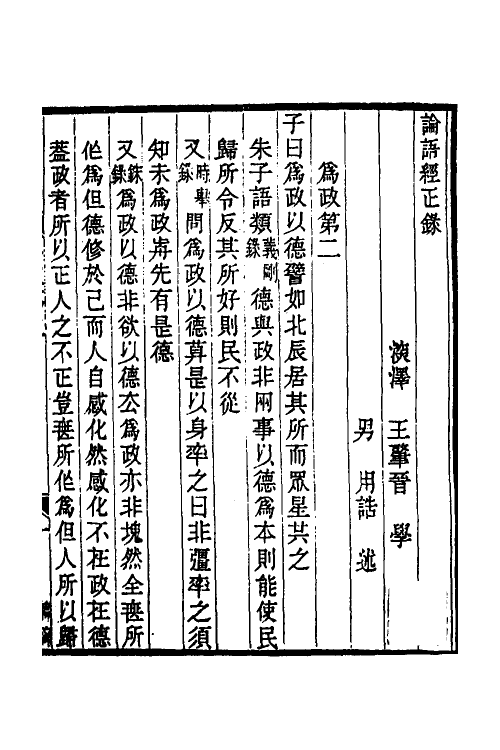 論語經正錄
淡澤 王肇晉 學
男 用誥 述
爲政第二
子曰爲政以德譬如北辰居其所而眾星共之
朱子語類義剛錄德與政非兩事以德爲本則能使民
歸所令反其所好則民不從
又時舉錄問爲政以德莫是以身率之曰非彊率之須
知未爲政歬先有是德
又銖錄爲政以德非欲以德去爲政亦非塊然全無所
作爲但德修於己而人自感化然感化不在政在德
葢政者所以正人之不正豈無所作爲但人所以歸